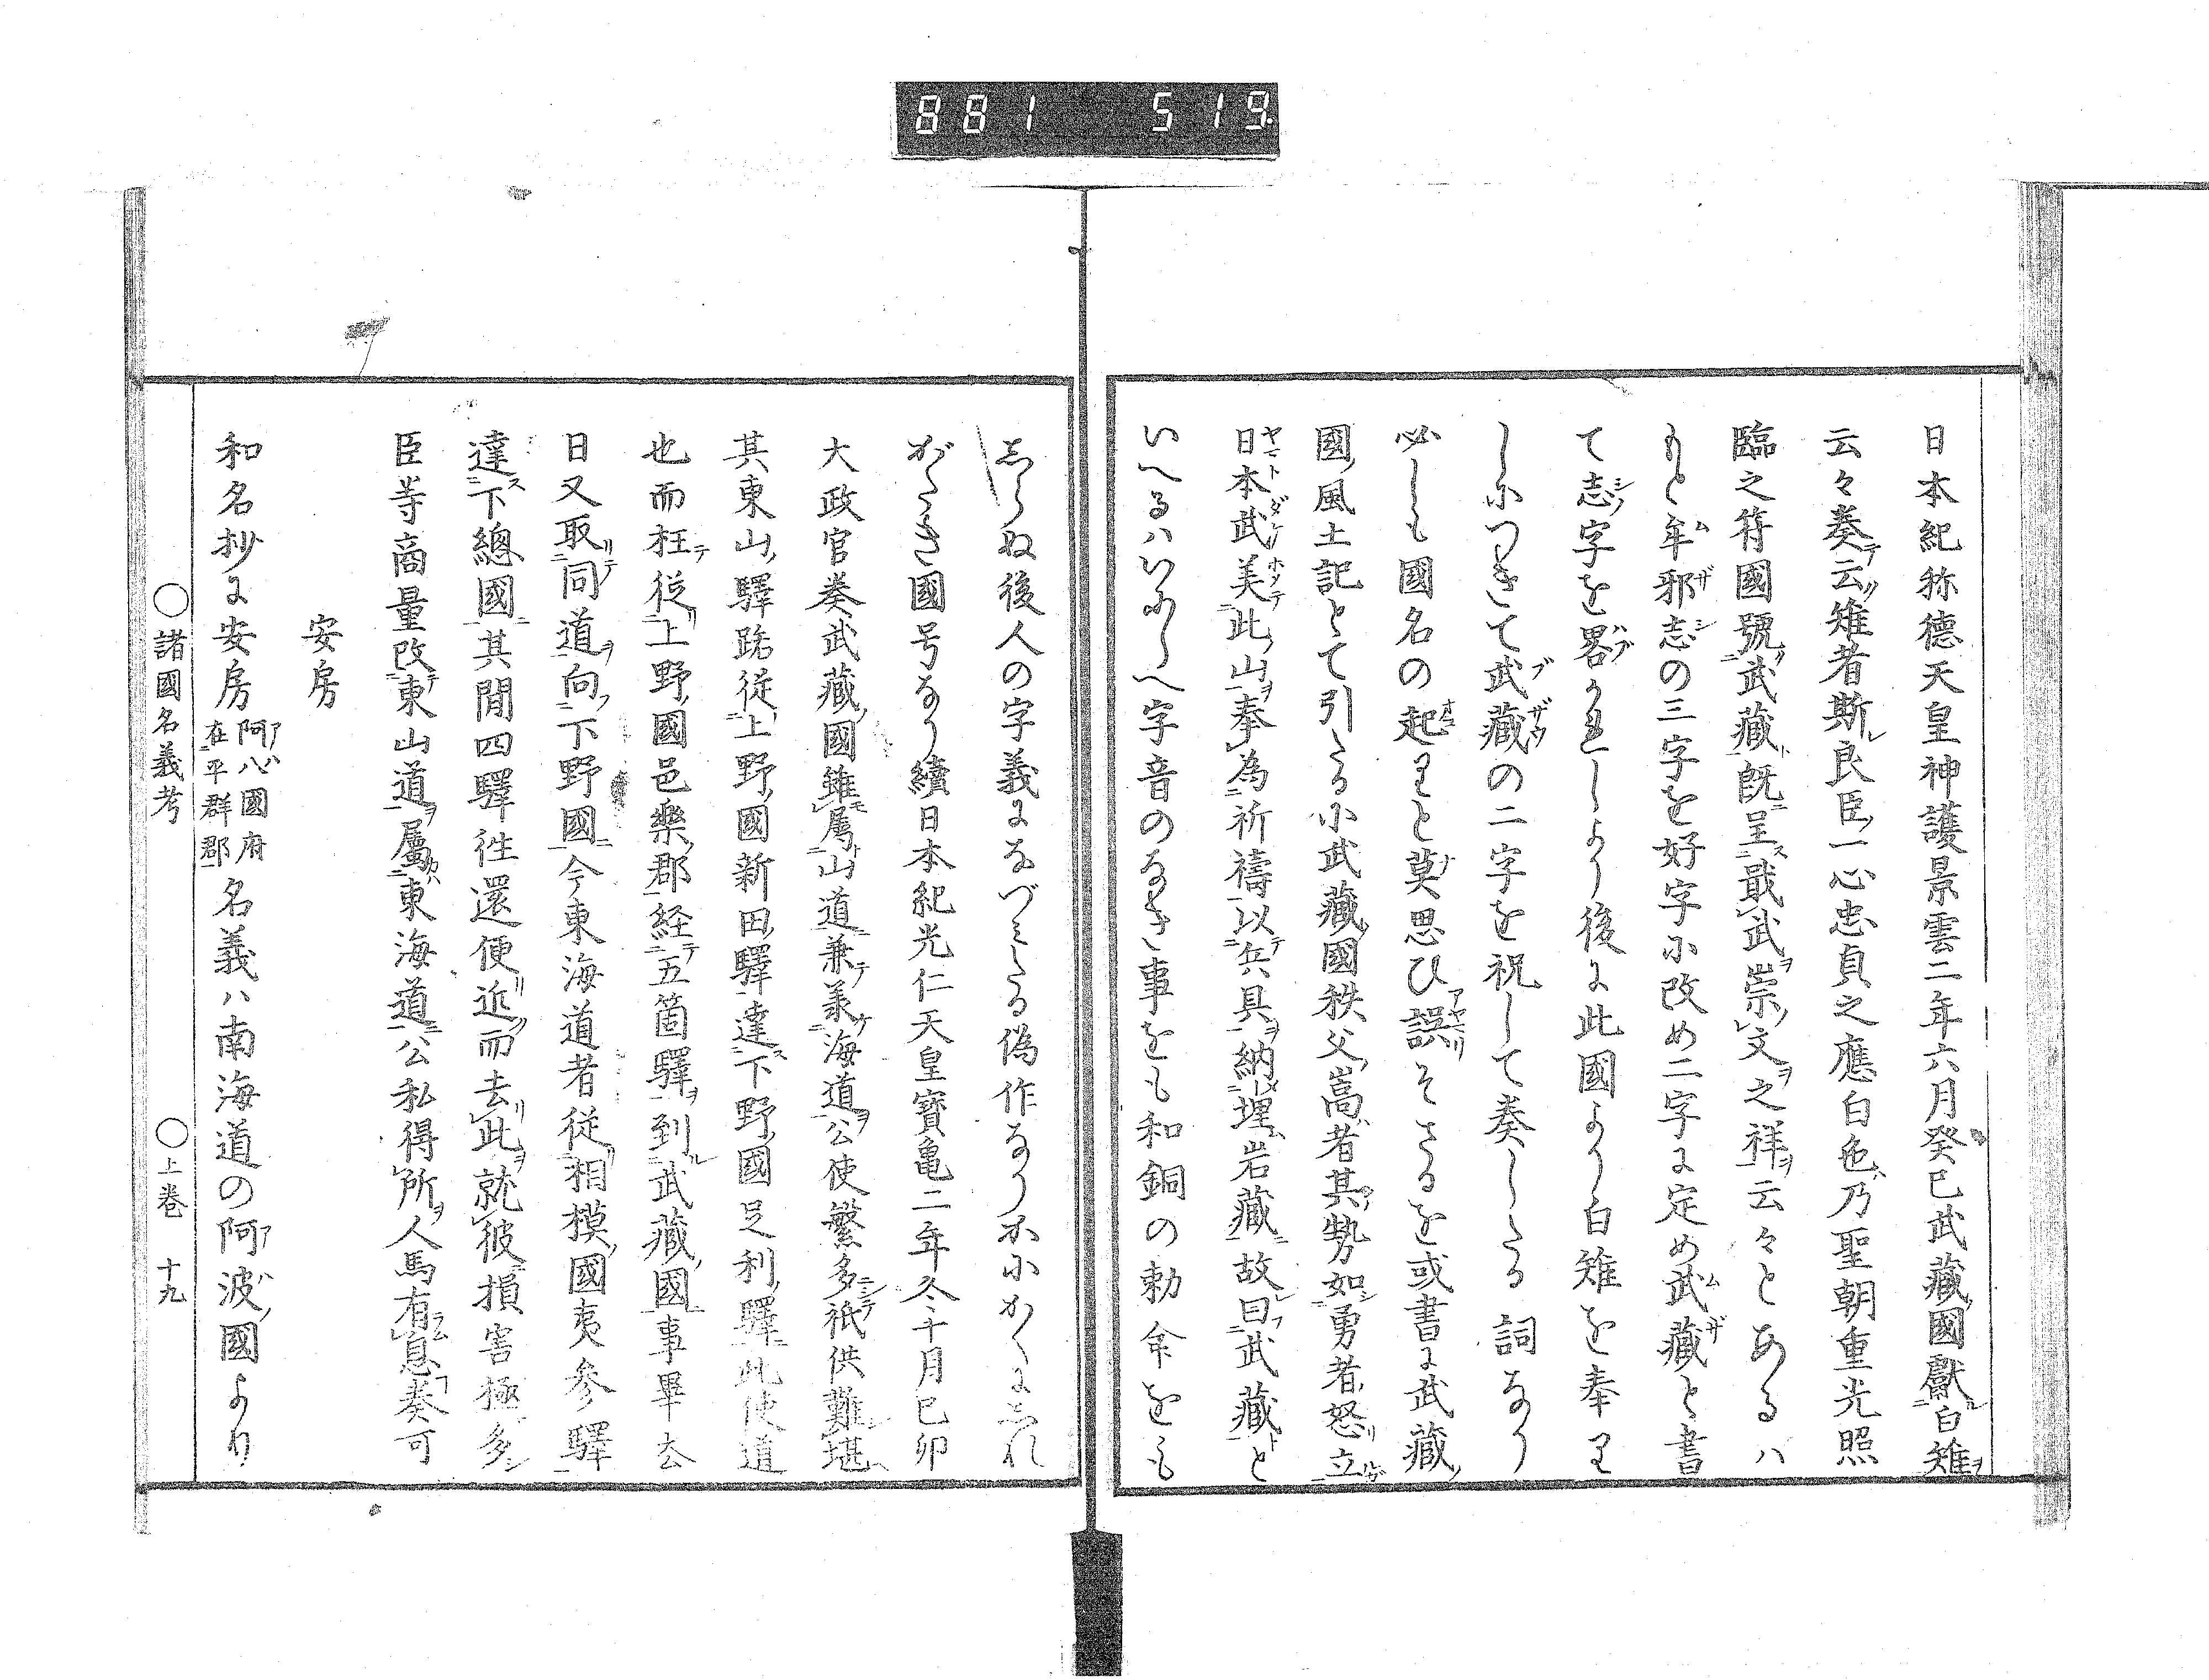 881 519
日本紀称徳天皇神護景雲二年六月癸巳武藏國獻白雉
云々奏云雉者斯良臣一心忠貞之應白色乃聖朝重光照
臨之符國號武藏既呈戢武崇文之祥云々とあるハ
もと牟邪志の三字を好字に改め二字に定め武藏と書
て志字を畧かれしより後に此國より白雉を奉り
しにつきて武藏の二字を祝して奏したる詞なり
必しも國名の起りと莫思ひ誤そさるを或書に武藏
國風土記とて引たる小武藏國秩父嵩者其勢如勇者怒立
日本武美此山奉為祈禱以兵具納埋岩藏故曰武藏と
いへるハいにしへ字音のなき事をも和銅の勅命をも
しらぬ後人の字義になづミたる偽作なり尓かくにしれ
がたき國号なり續日本紀光仁天皇寶亀二年冬十月己卯
大政官奏武藏國雖属山道兼承海道公使繁多祇供難堪
其東山驛路從上野國新田驛達下野國足利驛此使道
也而枉從上野國邑樂郡経五箇驛到武藏國事畢去
日又取同道向下野國今東海道者從相模國夷参驛
達下總國其間四驛徃還便近而去此就彼損害極多
臣等商量改東山道屬東海道公私得所人馬有息奏可
安房
和名抄に安房阿八國府在平群郡名義ハ南海道の阿波國より
○諸國名義考 ○上巻 十九